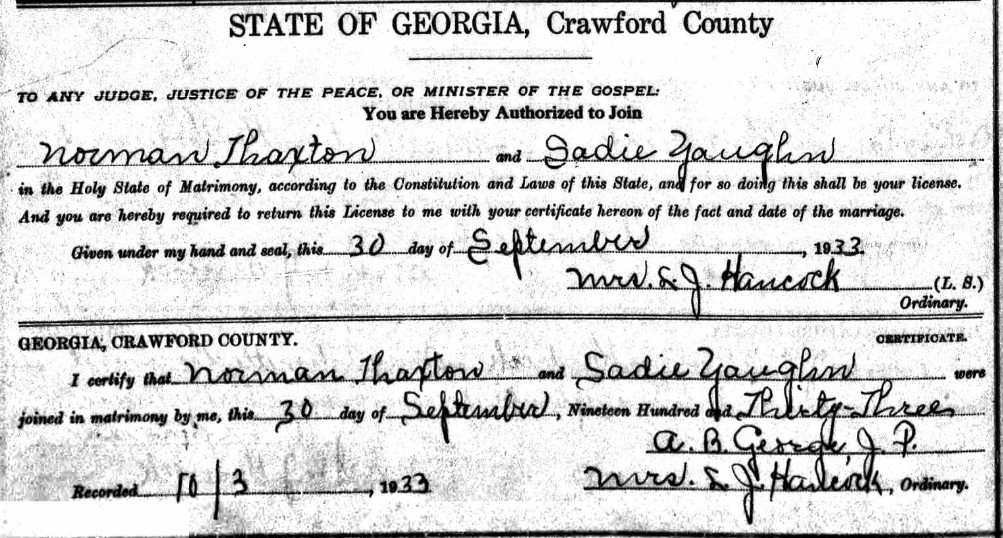 STATE OF GEORGIA, Crawford County
TO ANY JUDGE, JUSTICE OF THE PEACE, OR MINISTER OF THE GOSPEL:
You are Hereby Authorized to Join
Norman Thaxton and Sadie Yaughn
in the Holy State of Matrimony, according to the Constitution and Laws of this State, and for so doing this shall be your license.
And you are hereby required to return this License to me with your certificate hereon of the fact and date of the marriage.
Given under my hand and seal, this 30 day of September, 1933.
Mrs. L. J. Hancock (L. S.)
Ordinary.
GEORGIA, CRAWFORD COUNTY. CERTIFICATE.
I certify that Norman Thaxton and Sadie Yaughn were
joined in matrimony by me, this 30 day of September, Nineteen Hundred and Thirty-Three
A. B. George, J. P.
Recorded 10/3, 1933 Mrs. L. J. Hancock, Ordinary.